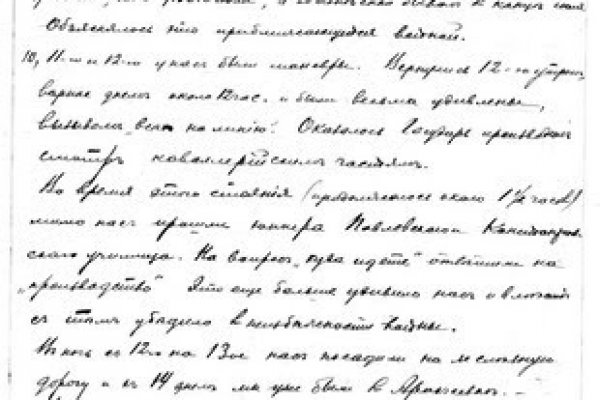 Объяснялось это приближающейся войной.
10, 11-го и 12-го у нас были маневры. Вернулись 12-го утром,
вернее днем около 12 час. и были весьма удивлены,
вызовом „всех на линію“. Оказалось Государь производит
смотръ кавалерійским частям.
Во время этого стояния (продолжалось около 1½ часов)
мимо нас прошли юнкера Павловского
училища. На вопрос „куда идете“ отвѣтили на
„производство“ Это еще больше удивило нас и
съ тѣмъ убѣдило в неизбѣжности войны.
В ночь съ 12го на 13ое нас посадили на желѣзную
дорогу и съ 14 днем мы уже были в